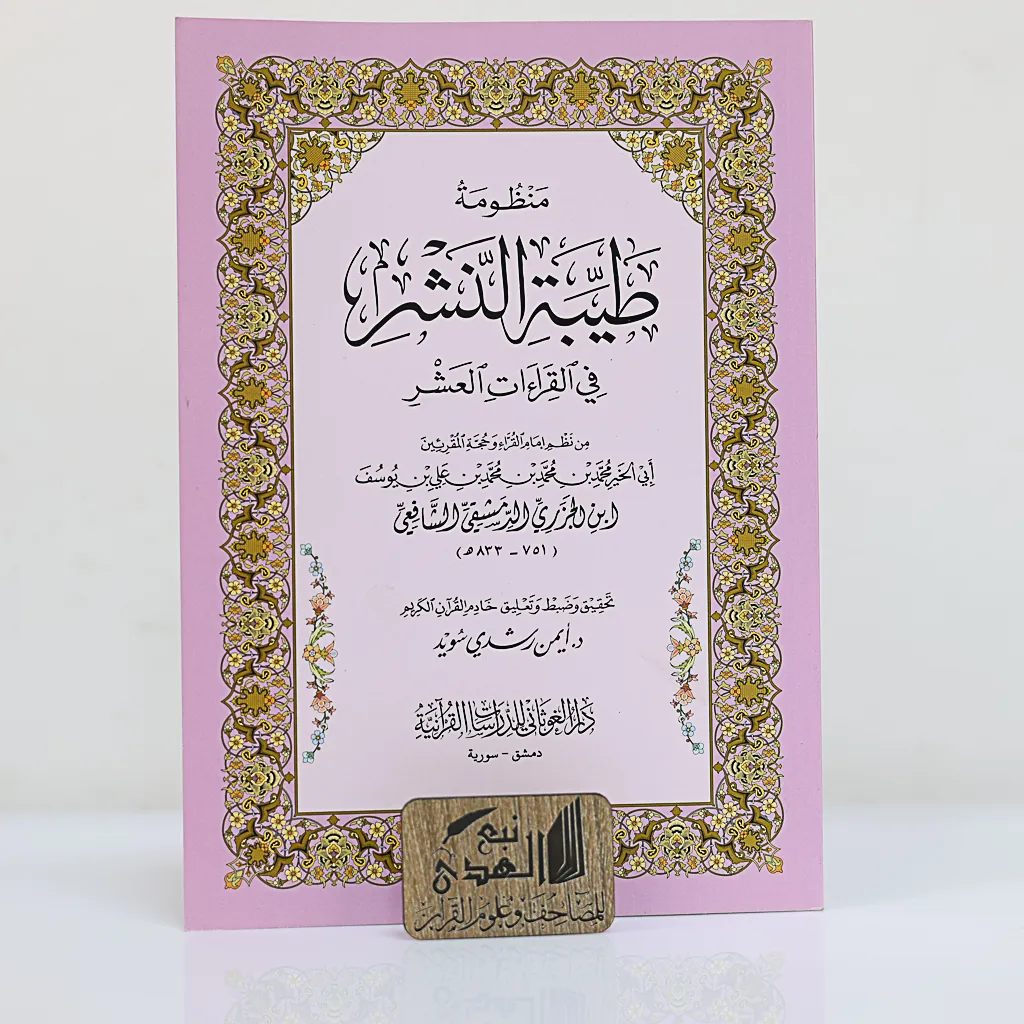 مَنْظُومَةُ
طَيِّبَةِ النَّشْرِ
فِي القِرَاءَاتِ العَشْرِ
مِن نَظْمِ إمَامِ القُرَّاءِ وَحُجَّةِ المُقْرِئِينَ
أَبِي الخَيْرِ مُحَمَّدِ بْنِ مُحَمَّدِ بْنِ مُحَمَّدِ بْنِ عَلِيِّ بْنِ يُوسُفَ
ابْنِ الجَزَرِيِّ الدِّمَشْقِيِّ الشَّافِعِيِّ
(٧٥١ - ٨٣٣ هـ)
تَحْقِيْقُ وَضَبْطُ وَتَعْلِيقُ خَادِمِ القُرْآنِ الكَرِيمِ
د. أيمن رشدي سُوَيْد
دَارُ الغَوْثَانِي لِلدِّرَاسَاتِ القُرْآنِيَّةِ
دمشق - سورية
نبع
الهدى
للمصاحف وعلوم القرآن